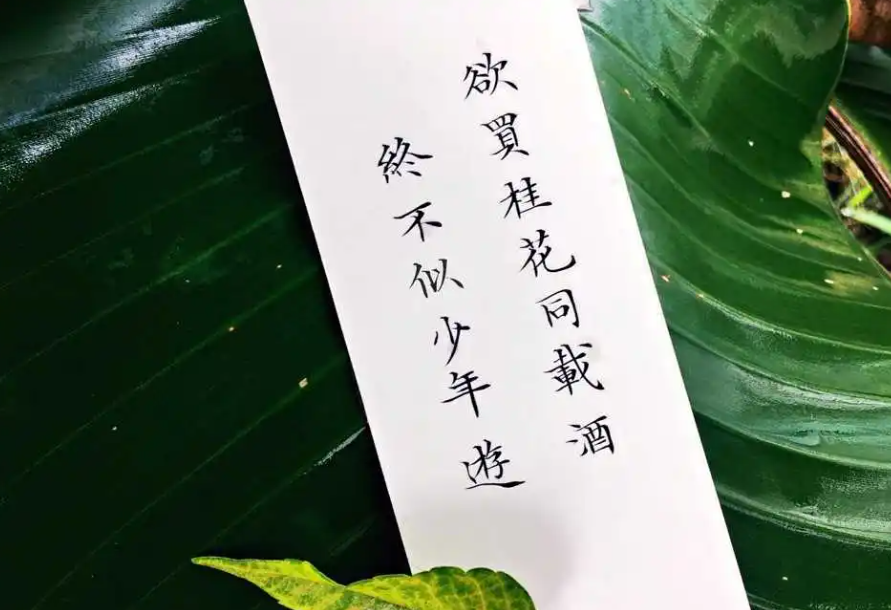 欲買桂花同載酒
終不似少年遊